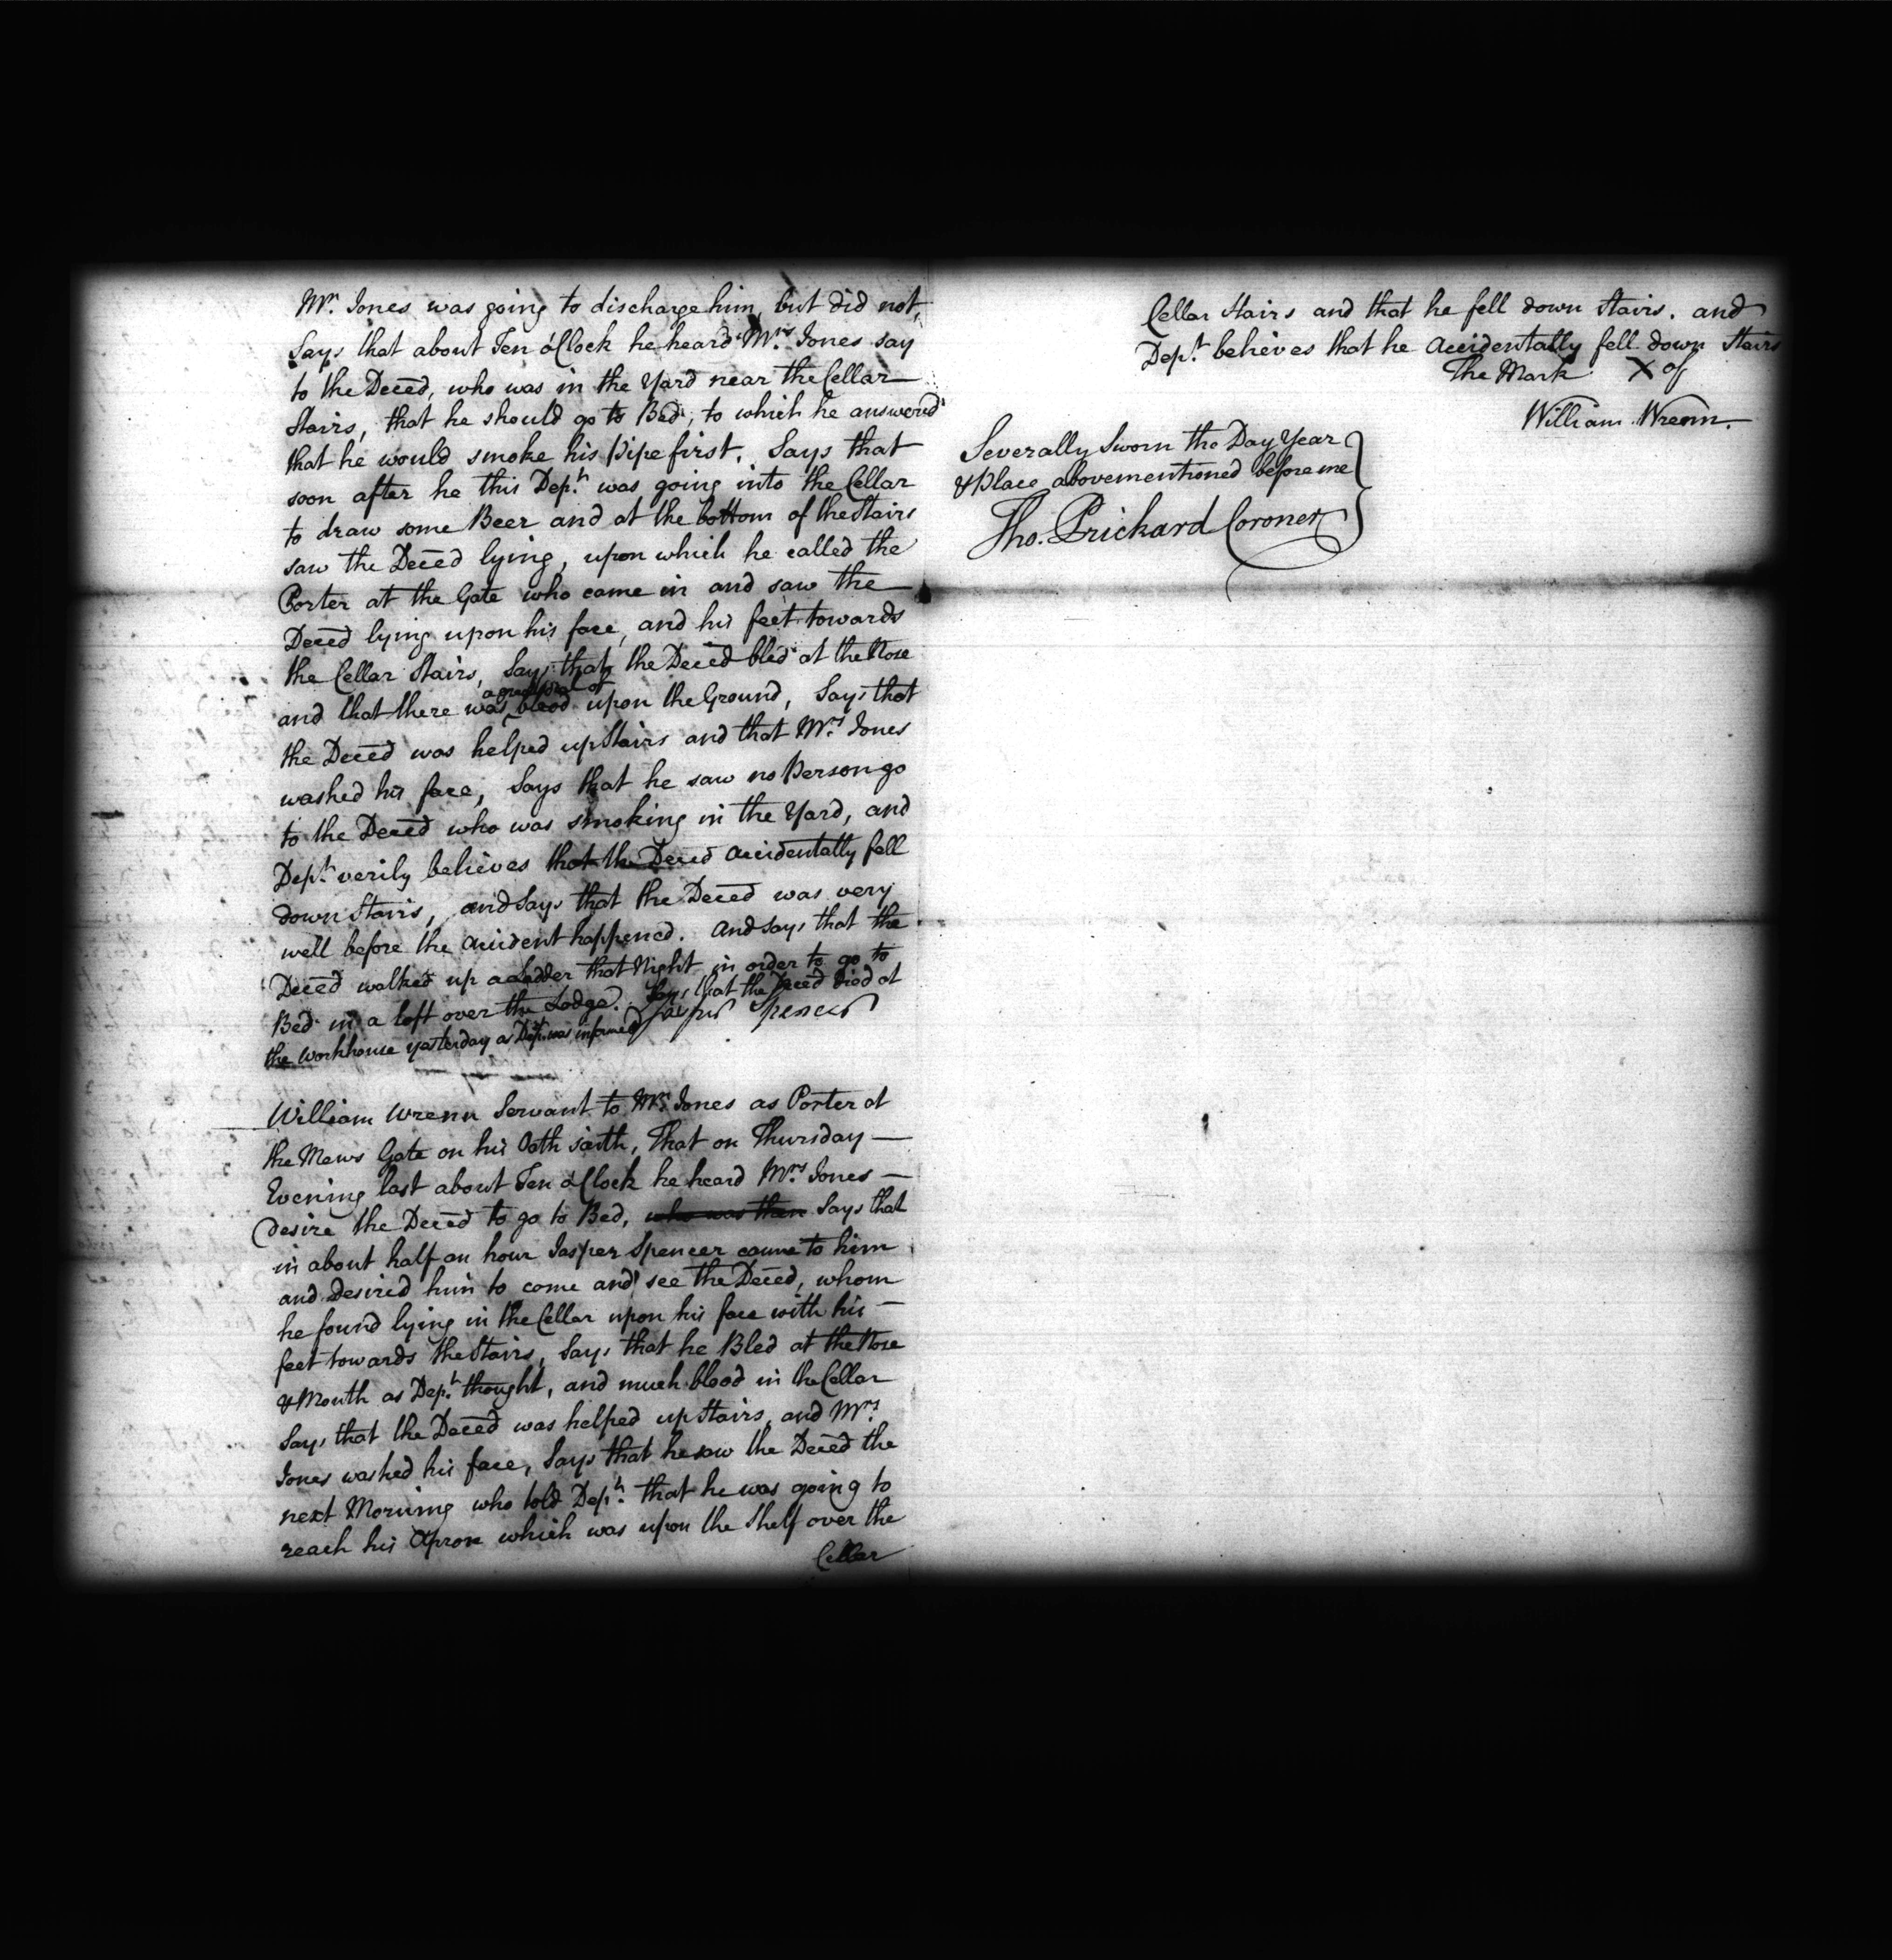 Mr. Jones was going to discharge him, but did not,
Says that about Ten o'Clock he heard Mrs. Jones say
to the Deced, who was in the Yard near the Cellar
Stairs, that he should go to Bed, to which he answered
that he would smoke his Pipe first. Says that
soon after he this Dept. was going into the Cellar
to draw some Beer and at the bottom of the Stairs
saw the Deced lying, upon which he called the
Porter at the Gate who came in and saw the
Deced lying upon his face, and his feet towards
the Cellar Stairs, Says that the Deced bled at the Nose
a great deal of
and that there was blood upon the Ground, Says that
the Deced was helped up Stairs and that Mrs. Jones
washed his face, Says that he saw no Person go
to the Deced who was smoking in the Yard, and
Dept. verily believes that the Deced accidentally fell
down Stairs, and Says that the Deced was very
well before the accident happened. And says that the
Deced walked up a Ladder that Night in order to go to
Bed in a loft over the Lodge. Says that the Deced died at
the Workhouse yesterday as Dept. was informed
Jasper Spencer
William Wrenn Servant to Mr. Jones as Porter at
the Mews Gate on his Oath saith, That on Thursday
Evening last about Ten o'Clock he heard Mrs. Jones
desire the Deced to go to Bed, who was then Says that
in about half an hour Jasper Spencer came to him
and desired him to come and see the Deced, whom
he found lying in the Cellar upon his face with his
feet towards the Stairs, Says that he Bled at the Nose
& Mouth as Dept. thought, and much blood in the Cellar
Says that the Deced was helped up Stairs, and Mrs.
Jones washed his face, Says that he saw the Deced the
next Morning who told Dept. that he was going to
reach his Apron which was upon the Shelf over the
Cellar
Cellar Stairs and that he fell down Stairs. and
Dept. believes that he accidentally fell down Stairs
The Mark X of
William Wrenn.
Severally Sworn the Day Year
& Place abovementioned before me
Tho. Prickard Coroner